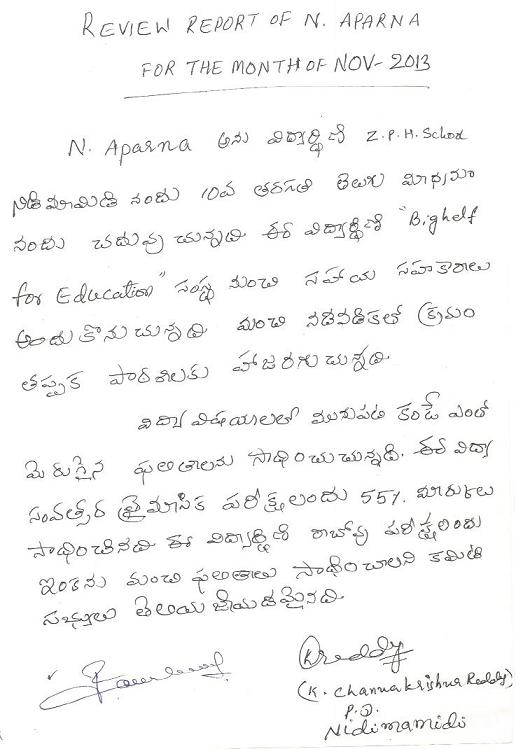 REVIEW REPORT OF N. APARNA
FOR THE MONTH OF NOV-2013
N. Aparna అను విద్యార్థిణి Z.P.H. School
నిడిమామిడి నందు 10వ తరగతి తెలుగు మాధ్యమం
నందు చదువు చున్నది. ఈ విద్యార్థిణి "Bighelf
for Education" సంస్థ నుంచి సహాయ సహకారాలు
అందుకొనుచున్నది. మంచి నడవడికతో క్రమం
తప్పక పాఠశాలకు హాజరగుచున్నది.
విద్యా విషయాలలో మునుపటి కంటే ఎంతో
మెరుగైన ఫలితాలను సాధించుచున్నది. ఈ విద్యా
సంవత్సర త్రైమాసిక పరీక్షలందు 55%. మార్కులు
సాధించినది ఈ విద్యార్థిణి రాబోవు పరీక్షలందు
ఇంకను మంచి ఫలితాలు సాధించాలని కమిటి
సభ్యులు తెలియ జేయడమైనది.
KReddy
(K. Channakrishna Reddy)
P.D.
Nidimamidi